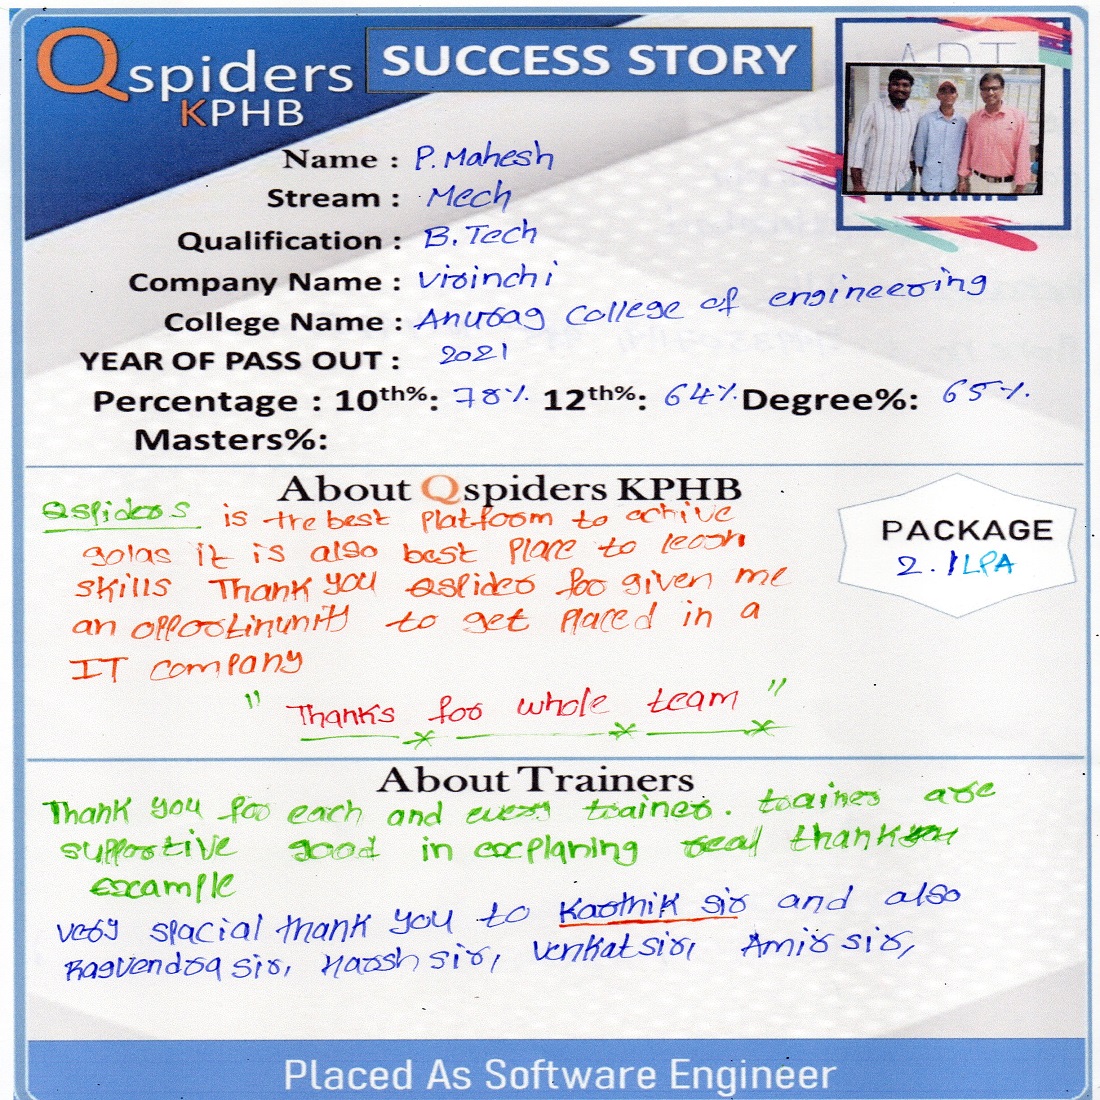 Qspiders
KPHB
SUCCESS STORY
Name : P. Mahesh
Stream : Mech
Qualification : B.Tech
Company Name : Virinchi
College Name : Anurag College of engineering
YEAR OF PASS OUT : 2021
Percentage : 10th%: 78% 12th%: 64% Degree%: 65%
Masters%:
About Qspiders KPHB
Qspiders is the best platform to achive
golas it is also best place to learn
skills Thank you Qspider for given me
an opportinunity to get placed in a
IT company
" Thanks for whole team "
PACKAGE
2.1LPA
About Trainers
Thank you for each and every trainer. trainer are
supportive good in excplaning real thank
excample
very spacial thank you to Karthik sir and also
Ragvendra sir, Harsh sir, Venkat sir, Amir sir,
Placed As Software Engineer